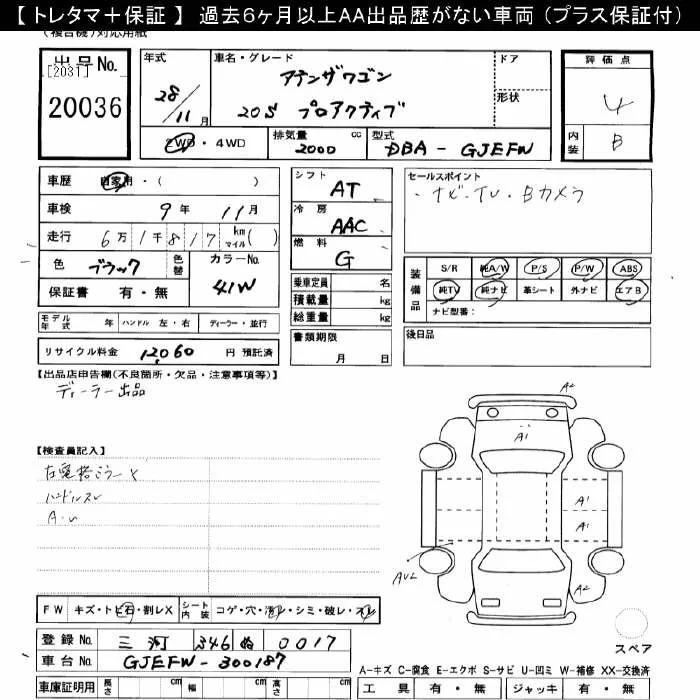 【 トレタマ＋保証 】 過去6ヶ月以上AA出品歴がない車両 (プラス保証付)
(複合機)対応用紙
出品No.
[2031]
20036
年式
28/11月
車名・グレード
アテンザワゴン
20S プロアクティブ
ドア
形状
評価点
4
内装
B
2WD・4WD
排気量 2000 cc
型式 DBA-GJEFW
車歴 自家用・( )
車検 9年 11月
走行 6万1千817 km マイル( )
色 ブラック 色替
カラーNo. 41W
保証書 有・無
シフト AT
冷房 AAC
燃料 G
乗車定員 名
積載量 kg
総重量 kg
セールスポイント
・ナビ・TV・Bカメラ
装備品
S/R 純A/W P/S P/W ABS
純TV 純ナビ 革シート 外ナビ エアB
ナビ型番：
モデル年式 年 ハンドル 左・右 ディーラー・並行
書類期限 月 日
後日品
リサイクル料金 12,060 円 預託済
【出品店申告欄(不良箇所・欠品・注意事項等)】
ディーラー出品
A2
A1
【検査員記入】
ハンドルスレ
A.U
A1
A1
AU2
A2
FW キズ・トビ石・割レX シート内装 コゲ・穴・汚レ・シミ・破レ・スレ
登録No. 三河 346 ぬ 0017
車台No. GJEFW-300187
スペア
車庫証明用 長さ cm 幅 cm 高さ cm
A-キズ C-腐食 E-エクボ S-サビ U-凹ミ W-補修 XX-交換済
工具 有・無 ジャッキ 有・無